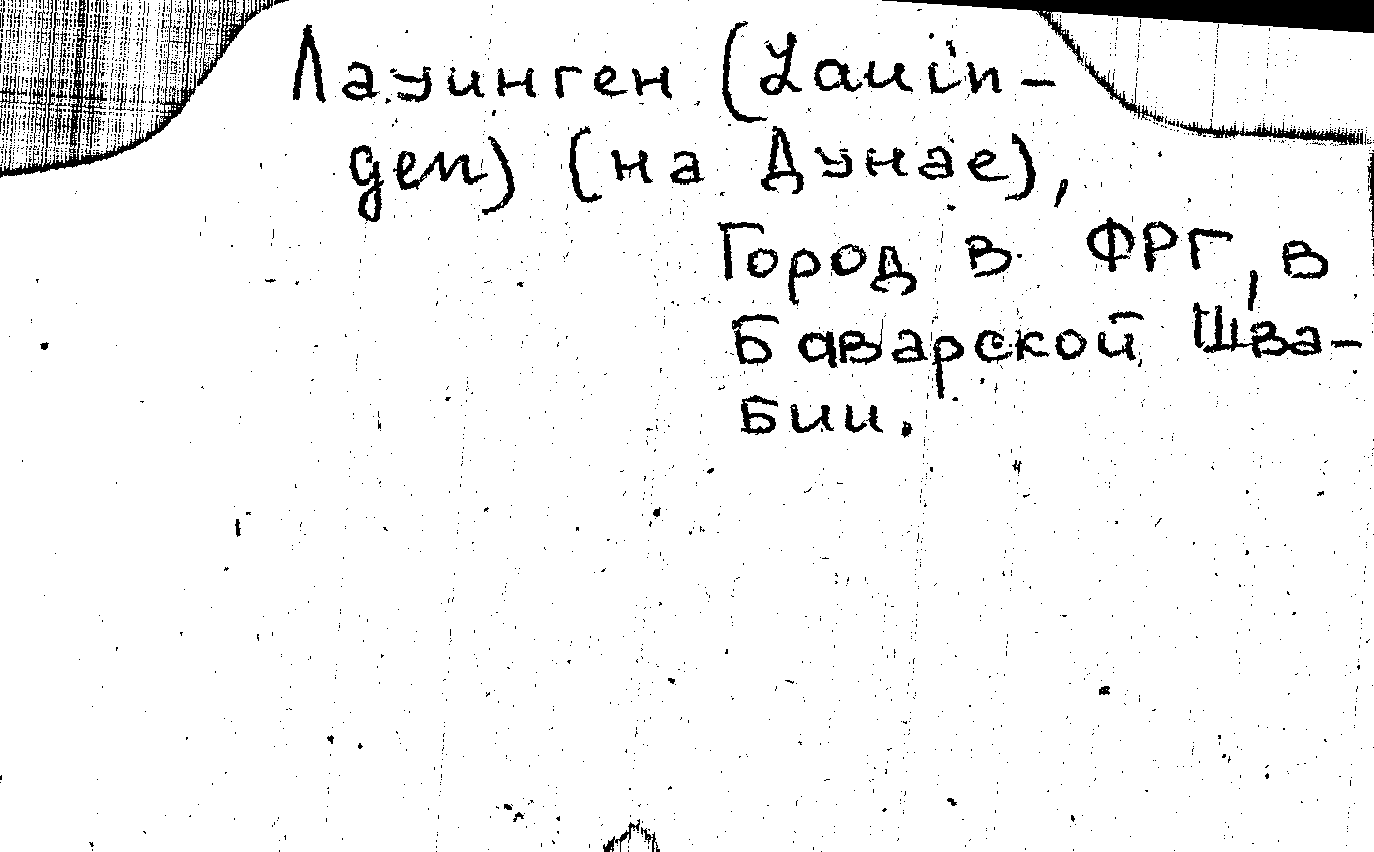 Лауинген (Lauin-
gen) (на Дунае),
Город в ФРГ, в
Баварской Шва-
бии.